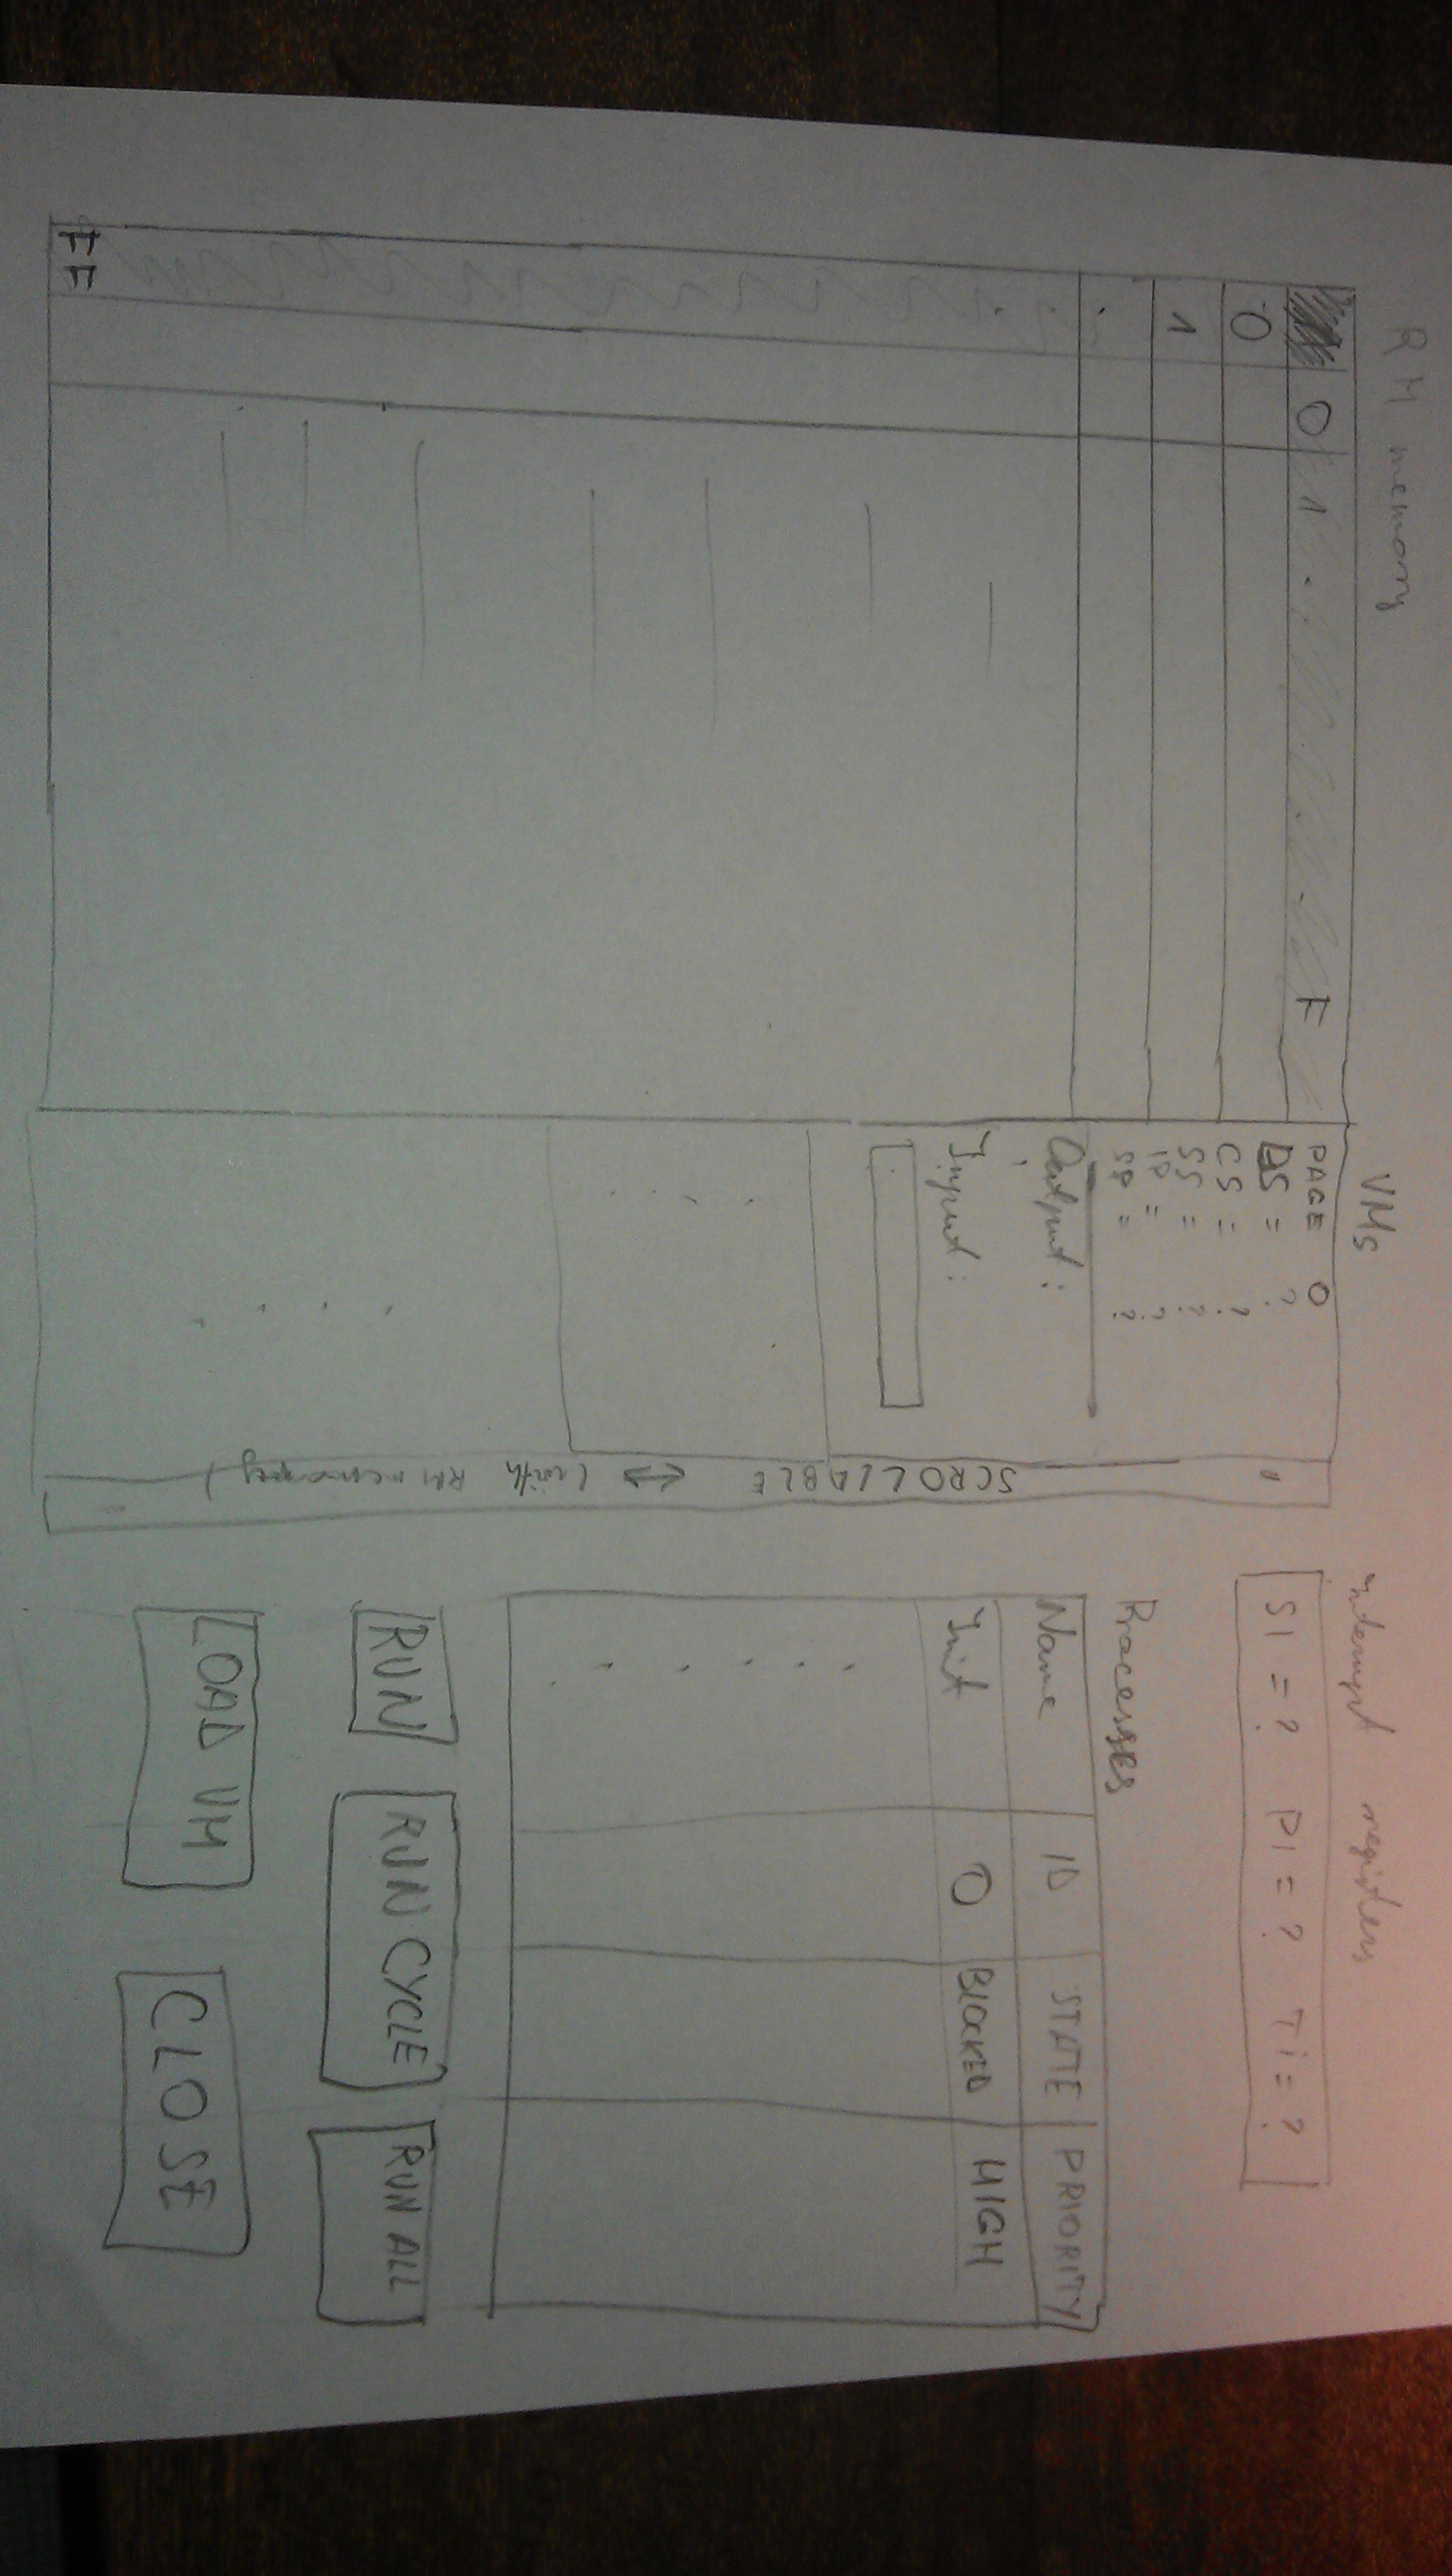 RM memory
0 1 . . F
0
1
.
FF
VMs
PAGE 0
DS = ?
CS = ?
SS = ?
IP = ?
SP = ?
Output:
Input:
SCROLLABLE ↔ (with RM memory)
Interrupt registers
SI = ? PI = ? Ti = ?
Processes
Name ID STATE PRIORITY
Init 0 BLOCKED HIGH
RUN RUN CYCLE RUN ALL
LOAD VM CLOSE